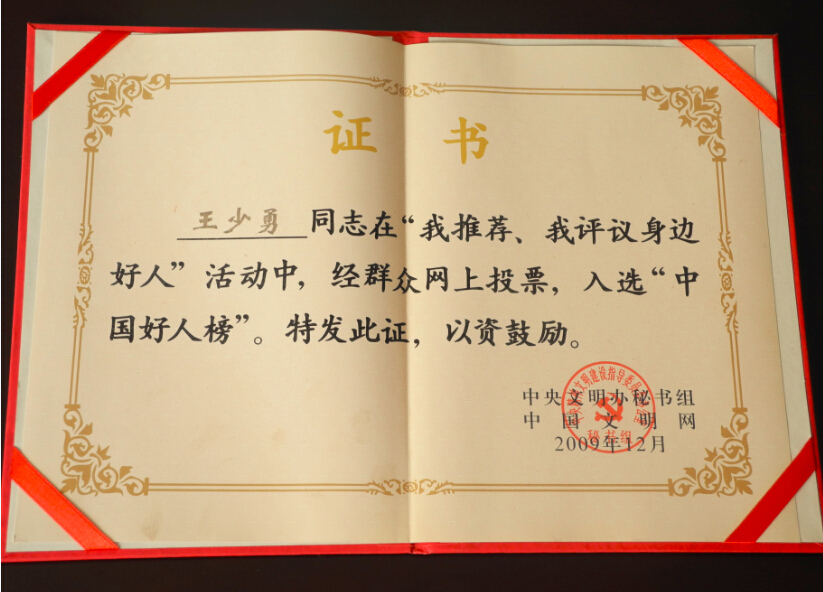 证书
王少勇同志在“我推荐、我评议身边
好人”活动中，经群众网上投票，入选“中
国好人榜”。特发此证，以资鼓励。
中央文明办秘书组
中国文明网
2009年12月
秘书组